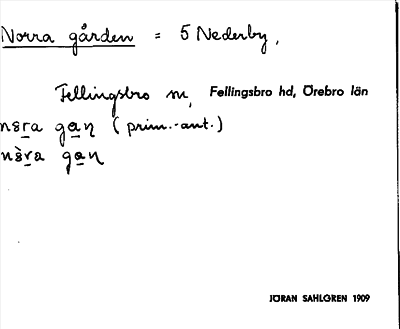 Norra gården = 5 Nederby,
Fellingsbro sn, Fellingsbro hd, Örebro län
gan (prim.-ant.)
gan
JÖRAN SAHLGREN 1909